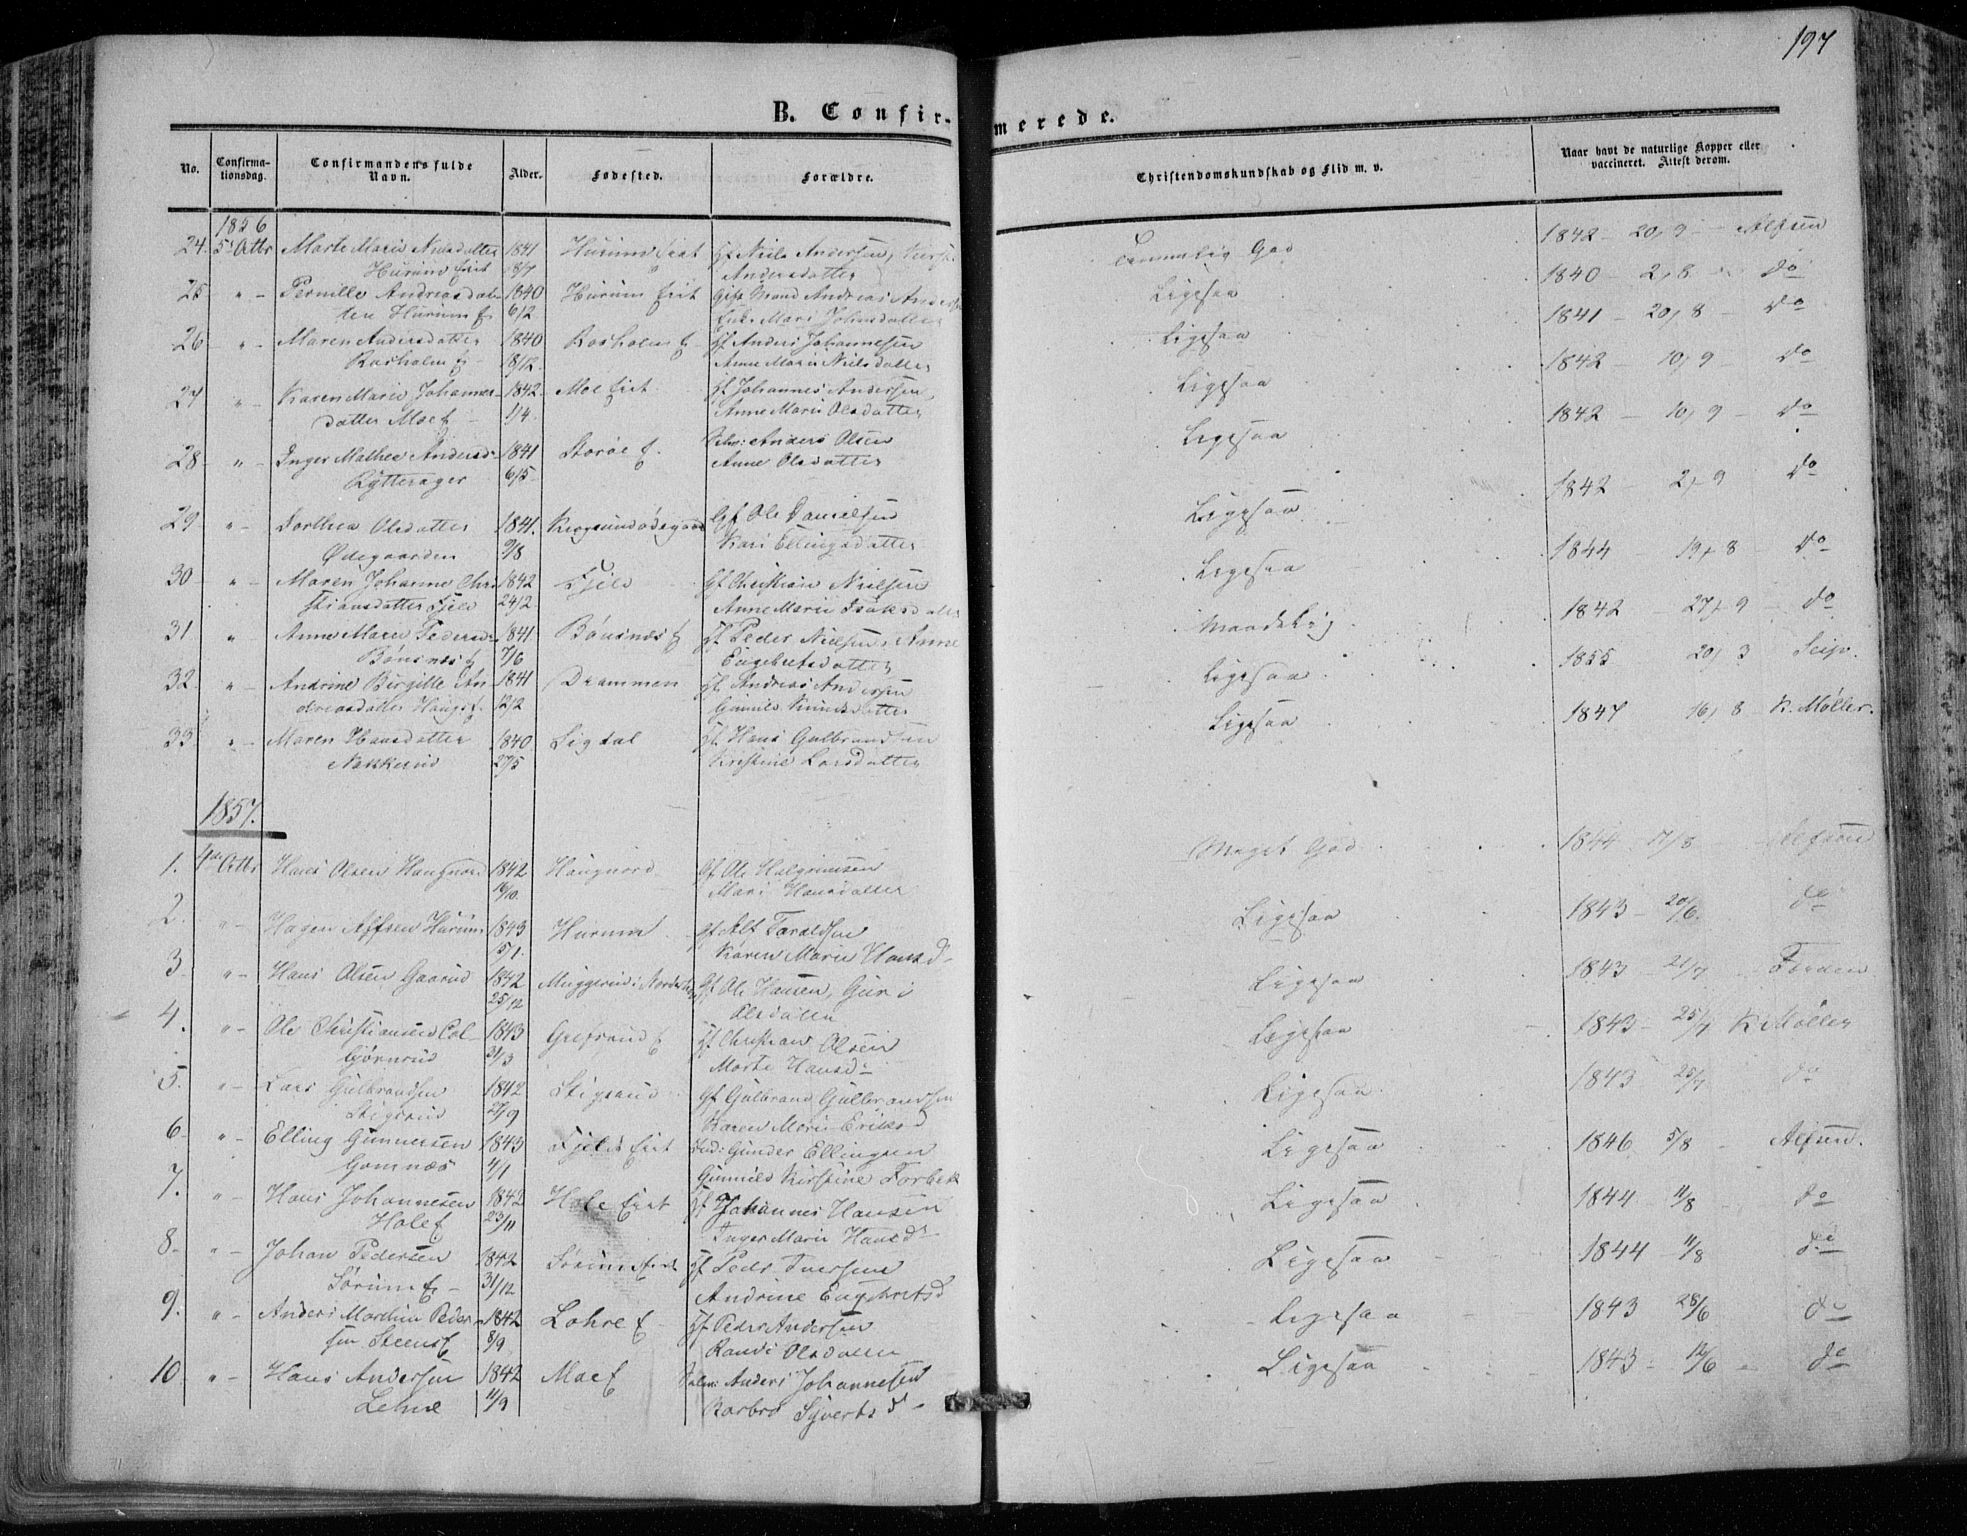 197
B. Confirmerede.
No. Confirmationsdag. Confirmandens fulde Navn. Alder. Fødested. Forældre. Christendomskundskab og Flid m. v. Naar havt de naturlige Kopper eller vaccineret. Attest derom.
1856
24. 5t Octbr Marte Marie Nielsdatter 1841 Hurum Eiet Gf Niels Andersen, Tammelig God 1842 - 20/9 - Alfsen
Hurum Eiet 18/7 Andersdatter
25 " - Pernille Andreasdat- 1840 Hurum Eiet Gift Mand Andreas Ligesaa 1840 - 2/8 do
ter Hurum E 6/2 Mari Johnsdatter
26 " - Maren Andersdatter 1840 Rosholm E Gf Anders Johannesen Ligesaa 1841 - 20/8 - do
Rosholm E 18/12 Anne Marie Nielsdatter
27 " - Karen Marie Johannes- 1842 Moe Eiet Gf Johannes Andersen, Ligesaa 1842 - 10/9 - do
datter Moe E 1/4 Anne Marie Olsdatter
28 " - Inger Mathea Andersd- 1841 Storøe E. Anders Olsen Ligesaa 1842 - 10/9 - do
Rytterager 6/5 Anne Olsdatter
29 " - Dorthea Olsdatter 1841. Gf Ole Danielsen Ligesaa 1842 - 2/9 do
Ødegaarden 9/8 Kari Ellingsdatter
30 " - Maren Johanne Chri- 1842 Fjeld Gf Christian Nielsen Ligesaa 1844 19/8 - do
stiansdatter Fjeld 24/2 Anne Marie Isaksdatter
31 " Anne Marie Pedersd- 1841 Bønsnæs E Gf Peder Nielsen, Anne Maadelig 1842 - 27/9 - do
Bønsnæs E 7/6 Engebretsdatter
32 " - Andrine Birgitte An- 1841 Drammen Gf Andreas Andersen Ligesaa 1855 20/3 Seip.
dreasdatter Haugs E. 12/2 Gunnild Knudsdatter
33 " - Maren Hansdatter 1840 Sigdal Gf Hans Gulbrandsen Ligesaa 1847 16/8 - K. Møller.
Nakkerud 27/5 Kristine Larsdatter
1857.
1. 4de Octbr Hans Olsen Haugnord 1842 Haugnord Gf Ole Halgrimsen Meget God 1844 - 17/8 - Alfsen
16/10. Mari Hansdatter
2. " - Hagen Alfsen Hurum 1843 Hurum Gf Alf Taraldsen Ligesaa 1843 - 20/6. do
15/1. Karen Marie Hansd-
3. " - Hans Olsen Gaarud 1842 Muggerud i Gf Ole Hansen, Guri Ligesaa 1843 - 21/7 -
25/12 Olsdatter
4. " - Ole Christiansen 1843 Grefsrud E Gf Christian Olsen Ligesaa 1843 - 25/7 K. Møller
Gjørnrud 31/3 Marte Hansd-
5. " - Lars Gulbrandsen 1842 Stigsrud Gf Gulbrand Gulbrandsen Ligesaa 1843 - 25/7 do
Stigsrud 27/9 Karen Marie Eriksd
6. " - Elling Gundersen 1843 Fjelds Eiet Gunder Ellingsen Ligesaa 1846 5/8 - Alfsen.
Gomnæs 4/1 Gunnild Kirstine
7. " - Hans Johannesen 1842 Hole Eiet Gf Johannes Hansen Ligesaa 1844 - 11/8 - do
Hole E 23/11 Inger Marie Hansd-
8. " - Johan Pedersen 1842 Sørum Eiet Gf Peder Iversen Ligesaa 1844 - 11/8 do
Sørum E - 31/12 Andrine Engebretsd
9. " - Anders Martin Peder- 1842 Lohre E - Gf Peder Andersen Ligesaa 1843 28/6 do
sen Steens E 8/9 Randi Olsdatter
10 " - Hans Andersen 1842 Moe E Anders Johannesen Ligesaa 1843 - 12/6 - do
Lehne 11/9 Barbro Syverts d -